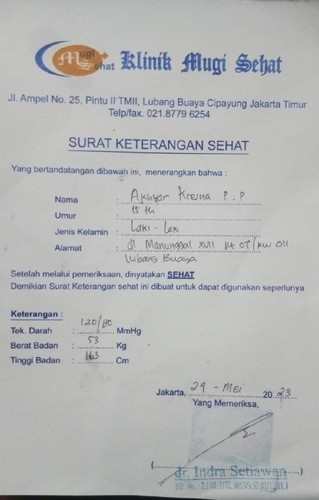 Mugi
Sehat
Klinik Mugi Sehat
Jl. Ampel No. 25, Pintu II TMII, Lubang Buaya Cipayung Jakarta Timur
Telp/fax. 021.8779 6254
SURAT KETERANGAN SEHAT
Yang bertandatangan dibawah ini, menerangkan bahwa :
Nama : Krisna P.P
Umur : 15 th
Jenis Kelamin : Laki - Laki
Alamat : Jl Manunggal XVII Rt 07/RW 011
Lubang Buaya
Setelah melalui pemeriksaan, dinyatakan SEHAT
Demikian Surat Keterangan sehat ini dibuat untuk dapat digunakan seperlunya
Keterangan :
Tek. Darah : 120/80 MmHg
Berat Badan : 53 Kg
Tinggi Badan : 163 Cm
Jakarta, 29 - Mei 2023
Yang Memeriksa,
dr. Indra Setiawan